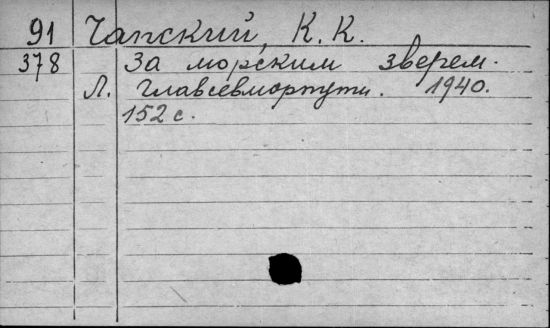 91 Чапский, К. К.
378 За морским зверем.
Л. Главсевморпути. 1940.
152 с.